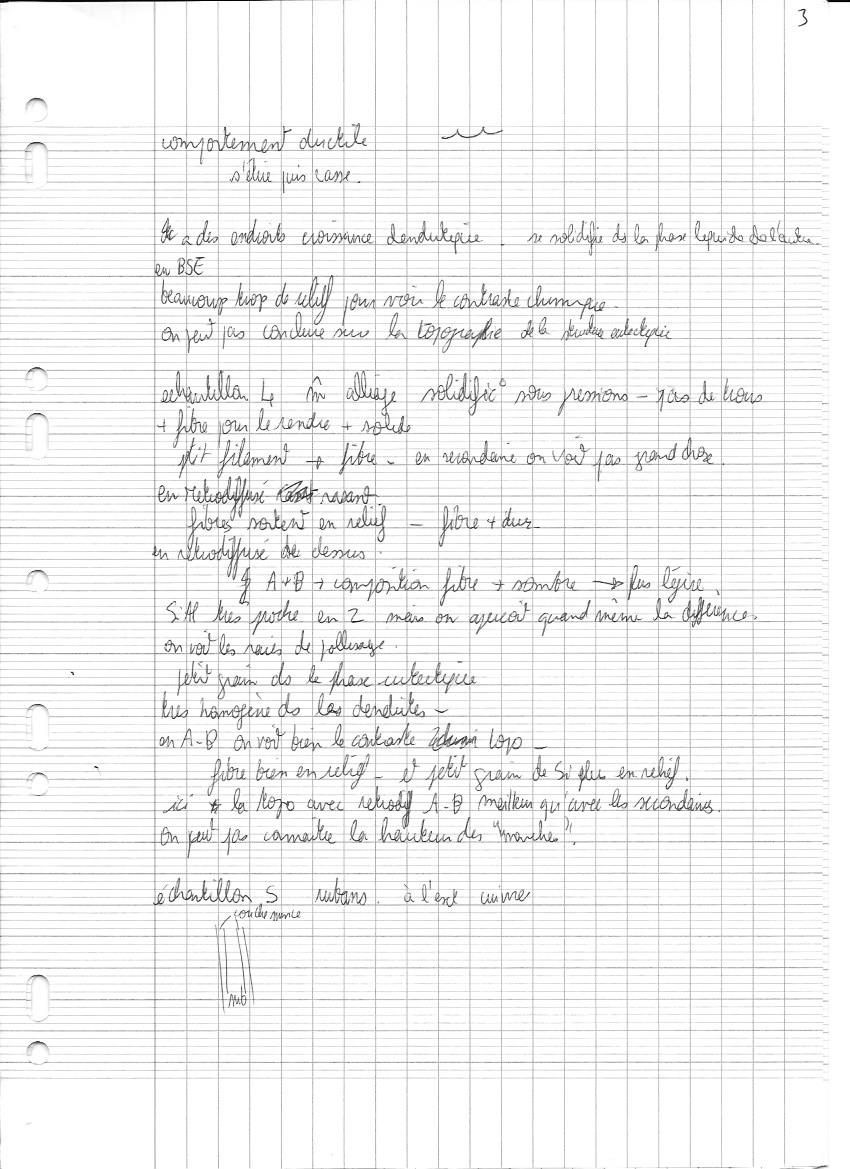 3
comportement ductile
s'étire puis casse.
a des endroits croissance dendritique. se solidifie ds la phase liquide de l'autre.
en BSE
beaucoup trop de relief pour voir le contraste chimique.
on peut pas conclure sur la topographie de la structure eutectique
echantillon 4 m̂ alliage solidific° sous pressions - pas de trous
+ fibre pour le rendre + solide
ptit filament → fibre - en secondaire on voit pas grand chose.
en retrodiffusé rasant
fibres sortent en relief - fibre + dur -
en retrodiffusé de dessus.
A+B → composition fibre + sombre → plus légère.
Si Al très proche en Z mais on aperçoit quand même la différence.
on voit les raies de polissage.
petit grain ds le phase eutectique
tres homogène ds les dendrites -
en A-B on voit bien le contraste topo -
fibre bien en relief - et petit grain de Si plus en relief.
ici la topo avec retrodif A-B meilleur qu'avec les secondaires.
On peut pas connaitre la hauteur des "marches"!
échantillon 5 rubans. à l'ext cuivre
couche mince
rub